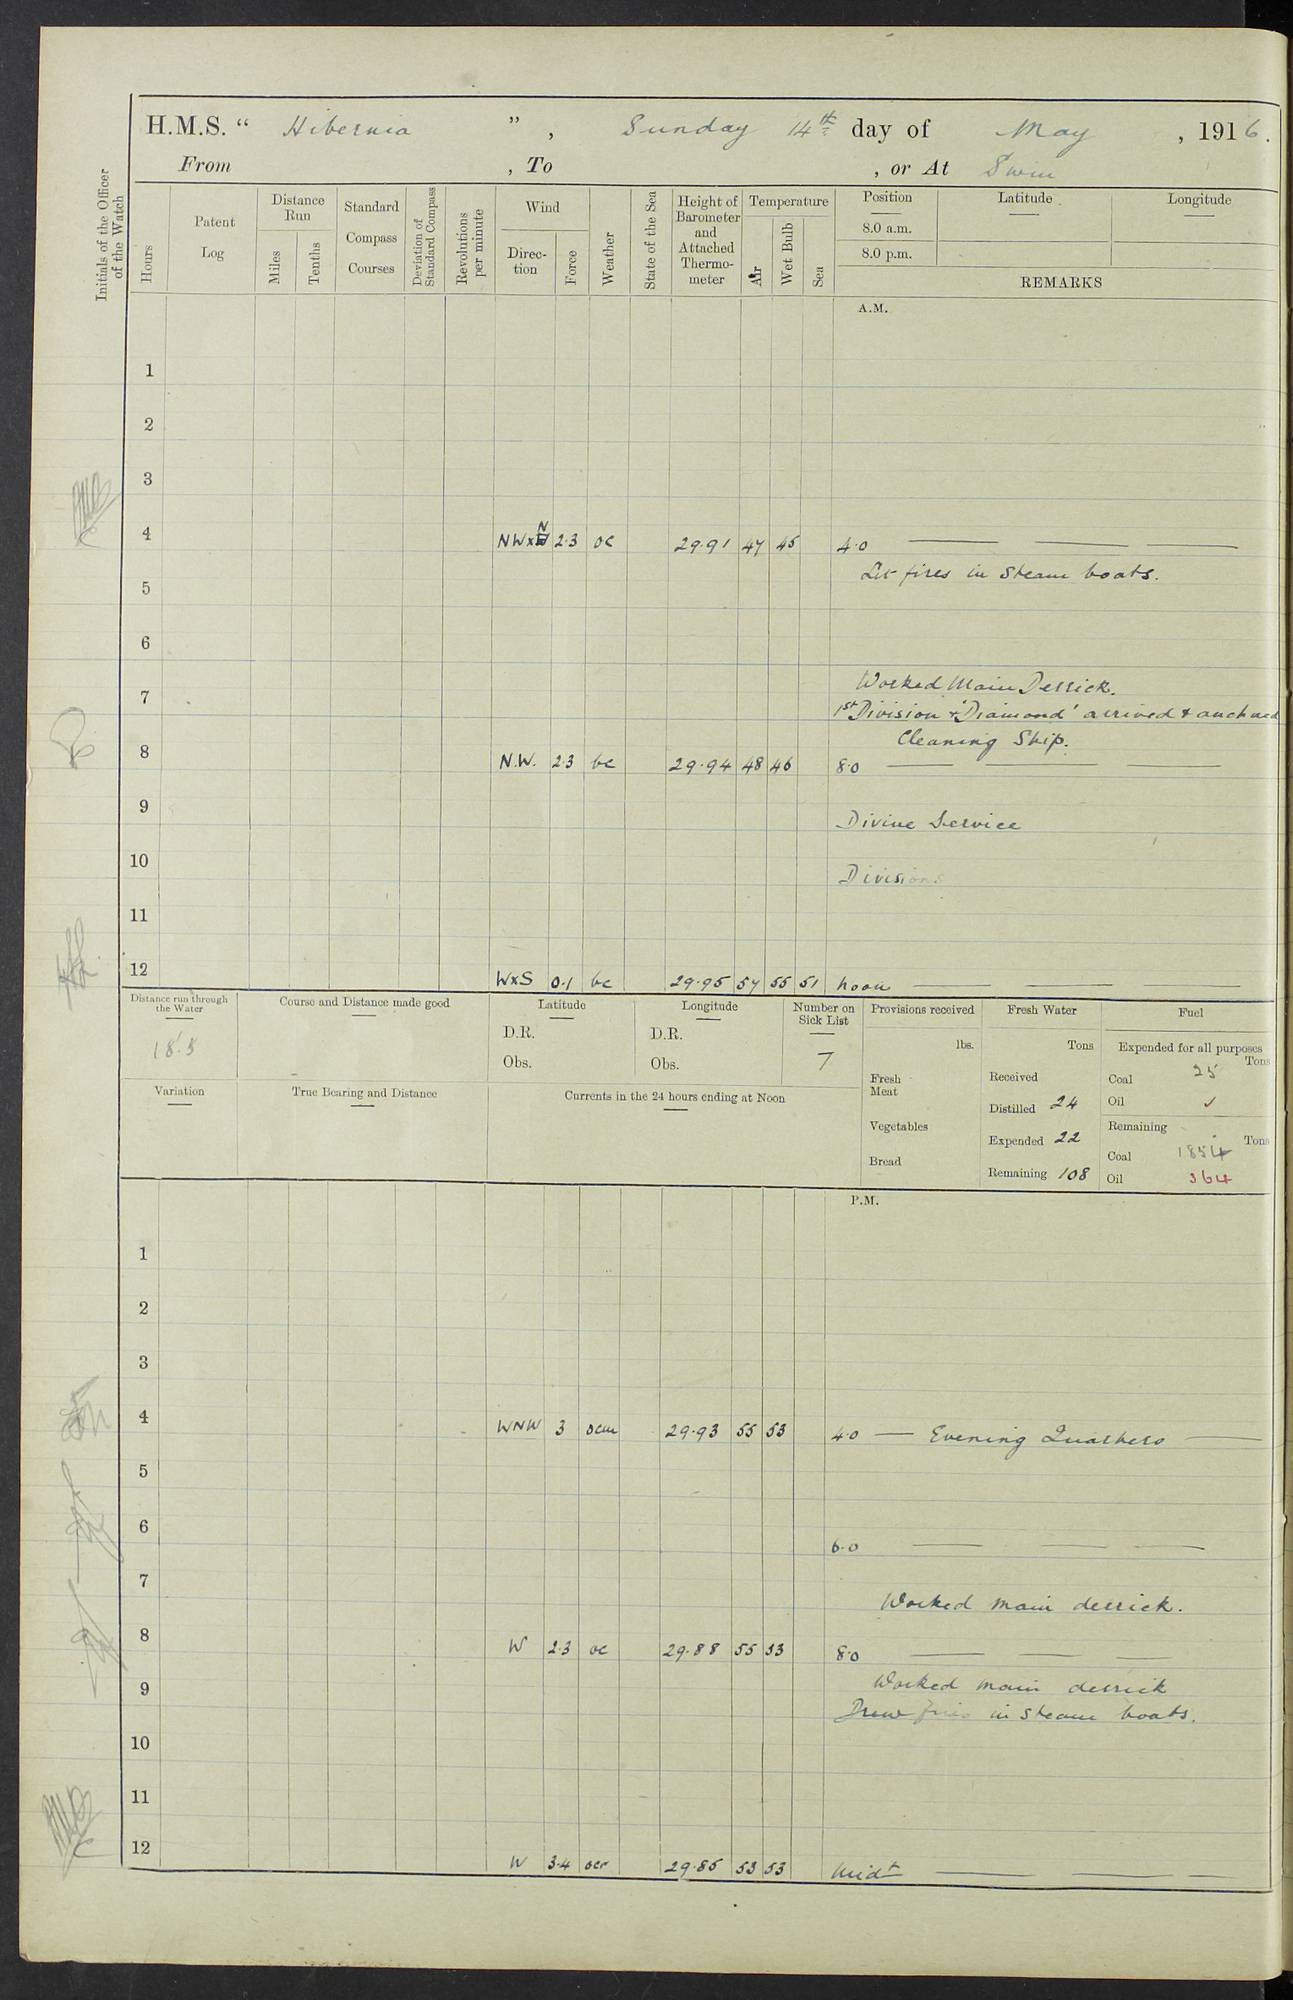 H.M.S. “ Hibernia ” , Sunday 14th day of May , 1916.
From , To , or At Swin
Initials of the Officer of the Watch
Hours
Patent Log
Distance Run
Miles
Tenths
Standard Compass Courses
Deviation of Standard Compass
Revolutions per minute
Wind
Direction
Force
Weather
State of the Sea
Height of Barometer and Attached Thermometer
Temperature
Air
Wet Bulb
Sea
Position Latitude Longitude
8.0 a.m.
8.0 p.m.
REMARKS
A.M.
1
2
3
4 NWxN 2.3 oc 29.91 47 45 4.0
Lit fires in Steam boats.
5
6
Worked Main Derrick.
7
1st Division + 'Diamond' arrived & anchored
Cleaning Ship.
8 N.W. 2.3 bc 29.94 48 46 8.0
9
Divine Service
10
Divisions
11
12 WxS 0.1 bc 29.95 57 55 51 Noon
Distance run through the Water
18.5
Course and Distance made good
Latitude
D.R.
Obs.
Longitude
D.R.
Obs.
Number on Sick List
7
Provisions received
lbs.
Fresh Meat
Vegetables
Bread
Fresh Water
Tons
Received
Distilled 24
Expended 22
Remaining 108
Fuel
Expended for all purposes
Tons
Coal 25
Oil ✓
Remaining
Tons
Coal 1854
Oil 364
Variation
True Bearing and Distance
Currents in the 24 hours ending at Noon
P.M.
1
2
3
4 WNW 3 ocm 29.93 55 53 4.0 — Evening Quarters —
5
6
6.0
7
Worked main derrick.
8 W 2.3 oc 29.88 55 53 8.0
9 Worked main derrick
Drew fires in steam boats.
10
11
12 W 3.4 ocr 29.85 53 53 Midt